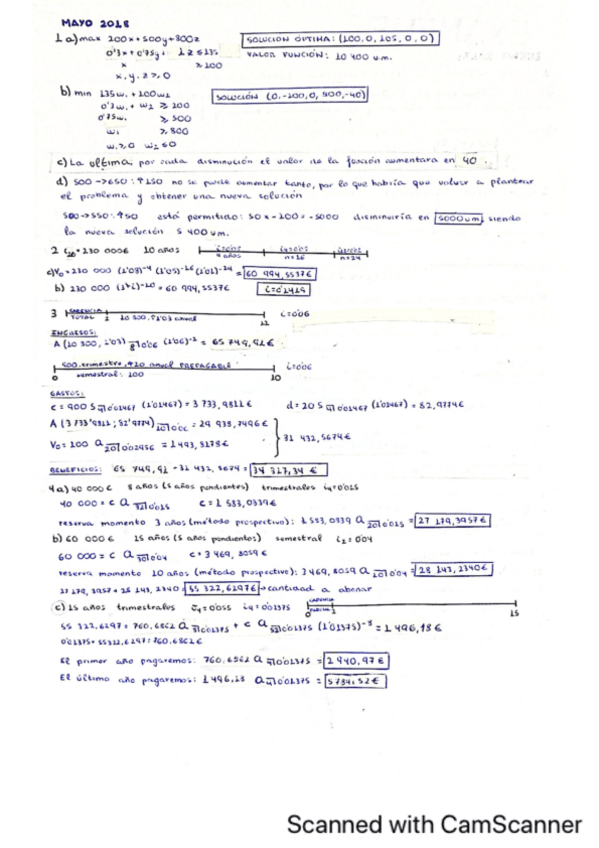 MAYO 2018
1 a) max 200x+500y+800z
SOLUCIÓN ÓPTIMA: (100, 0, 105, 0, 0)
0'3x+0'75y+ 1z≤135
VALOR FUNCIÓN: 10 400 u.m.
x ≥100
x, y, z ≥ 0
b) min 135w₁ +100w₂
SOLUCIÓN (0, -100, 0, 800, -40)
0'3w₁ + w₂ ≥ 200
0'75w₁ ≥ 500
w₁ ≥ 800
w₁≥0 w₂≤0
c) La última; por cada disminución el valor de la función aumentara en 40.
d) 500 →650: ↑150 no se puede aumentar tanto, por lo que habría que volver a plantear
el problema y obtener una nueva solución
500→550: ↑50 está permitido: 50 x -100 = -5000 disminuiría en 5000um, siendo
la nueva solución 5 400 um.
2 C₂₀=230 000€ 10 años
4 años n=16 n=24
a) V₀ = 230 000 (1'08)⁻⁴ (1'05)⁻¹⁶ (1'01)⁻²⁴ = 60 994,5537€
b) 230 000 (1+i)⁻¹⁰ = 60 994,5537€ i=0'1419
3 CARENCIA TOTAL 2 10 300, 1'03 anual 12 i=0'06
INGRESOS:
A (10 300, 1'03) (1'06)⁻² = 65 749,91€
500 trimestre, +20 anual PREPAGABLE i=0'06
0 semestral: 100 10
GASTOS:
c = 900 S 4|0'01467 (1'01467) = 3 733,9811€ d = 20 S 4|0'01467 (1'01467) = 82,9774€
A (3 733'9811; 82'9774) 10|0'06 = 29 938,7496€
V₀ = 100 a 20|0'02956 = 1493,8178€
31 432,5674€
BENEFICIOS: 65 749,91 - 31 432,5674 = 34 317,34 €
4 a) 40 000€ 8 años (5 años pendientes) trimestrales i₄=0'015
40 000 = c a 32|0'015 c = 1 583,0839€
reserva momento 3 años (método prospectivo): 1 583,0839 a 20|0'015 = 27 179,3957€
b) 60 000€ 15 años (5 años pendientes) semestral i₂ = 0'04
60 000 = c a 30|0'04 c = 3 469,8059€
reserva momento 10 años (método prospectivo): 3 469,8059 a 10|0'04 = 28 143,2340€
27 179,3957 + 28 143,2340 = 55 322,6297€ → cantidad a abonar
c) 15 años trimestrales i₄=0'01375
CARENCIA PARCIAL
0 15
55 322,6297 = 760,6862 a + c a (1'01375)⁻⁸ = 1 496,18€
0'01375 · 55322,6297 = 760,6862€
El primer año pagaremos: 760,6862 a 4|0'01375 = 2940,97€
El último año pagaremos: 1 496,18 a 4|0'01375 = 5784,52€
Scanned with CamScanner